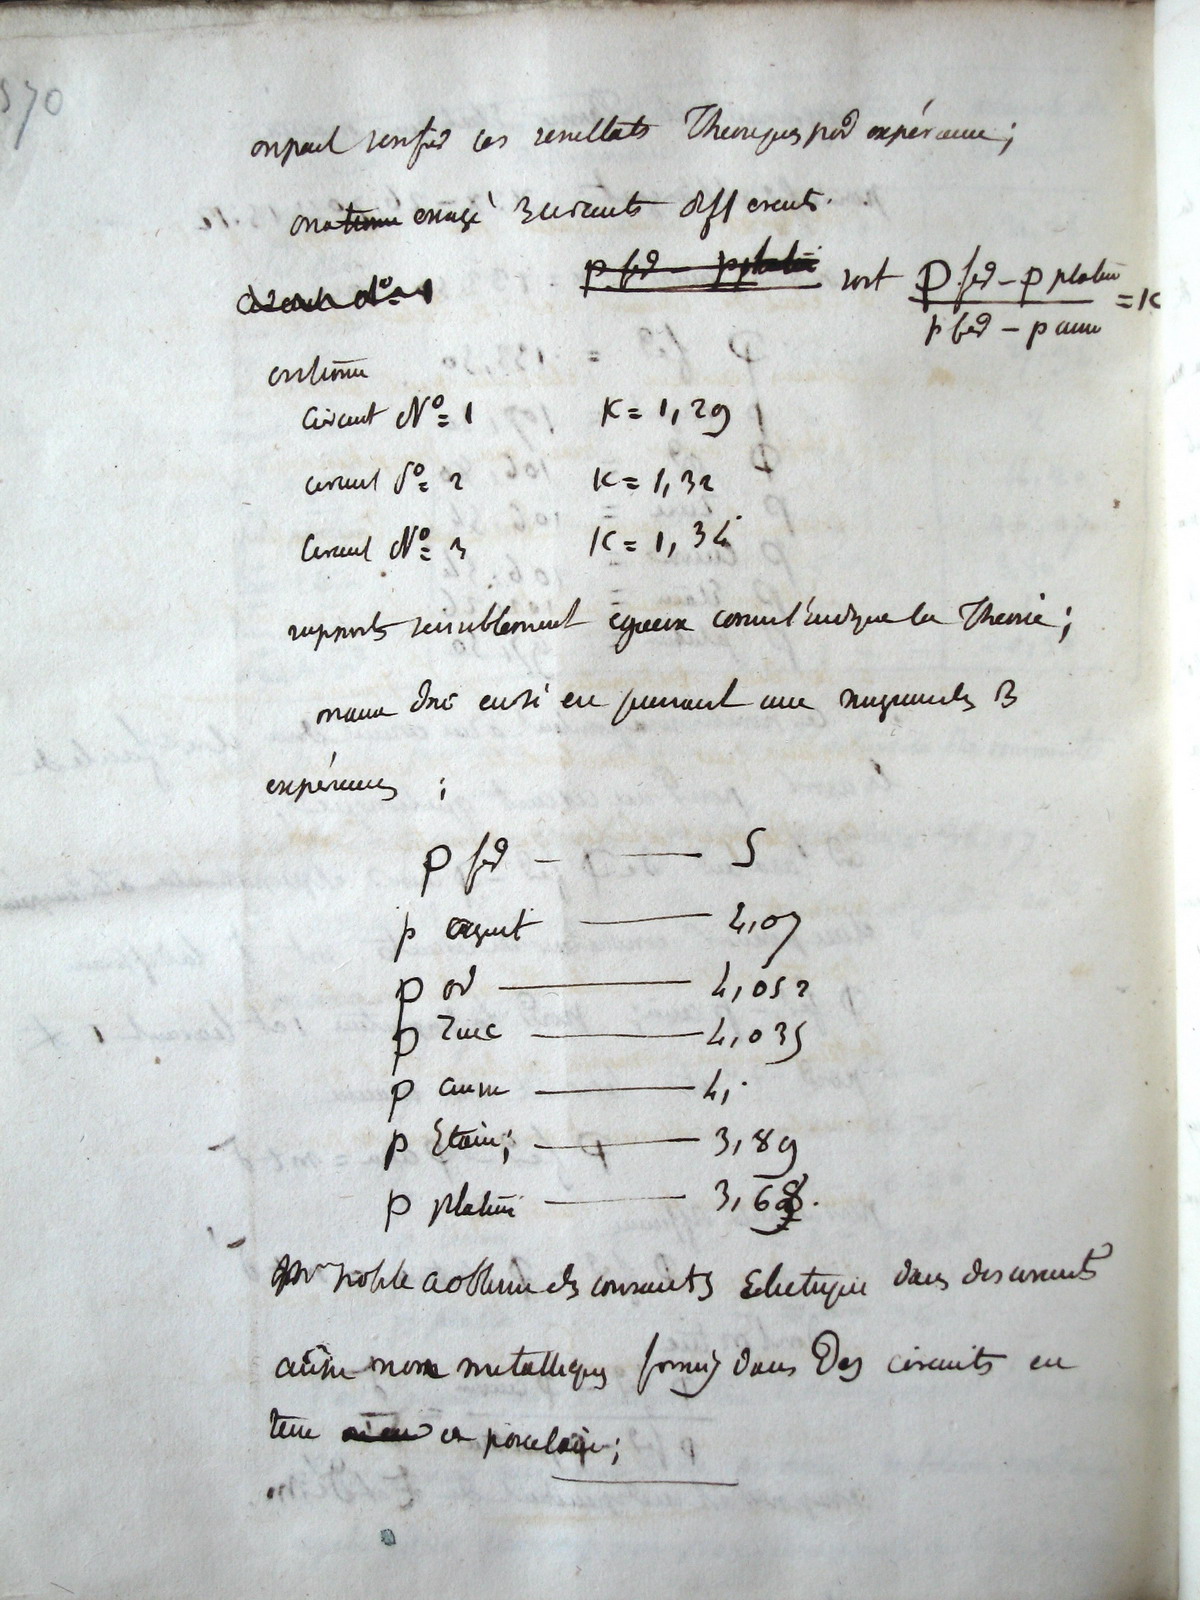 570
on peut verifier ces resultats Theoriques par experience;
on a essayé 3 circuits differents.
soit P fer - p platine / p fer - p cuivre = K
on trouve
circuit N° 1 K = 1,29
circuit N° 2 K = 1,32
circuit N° 3 K = 1,34
rapports sensiblement egaux comme l'indique la Theorie;
on aura donc ainsi en prenant une moyenne des 3
expériences ;
p fer — — 5
p argent — 4,07
p or — 4,052
p zinc — 4,035
p cuivre — 4,
p Etain; — 3,89
p platine — 3,68.
noble a obtenu des courants Electrique dans des circuits
metalliques formés dans Des circuits en
terre en porcelaine;